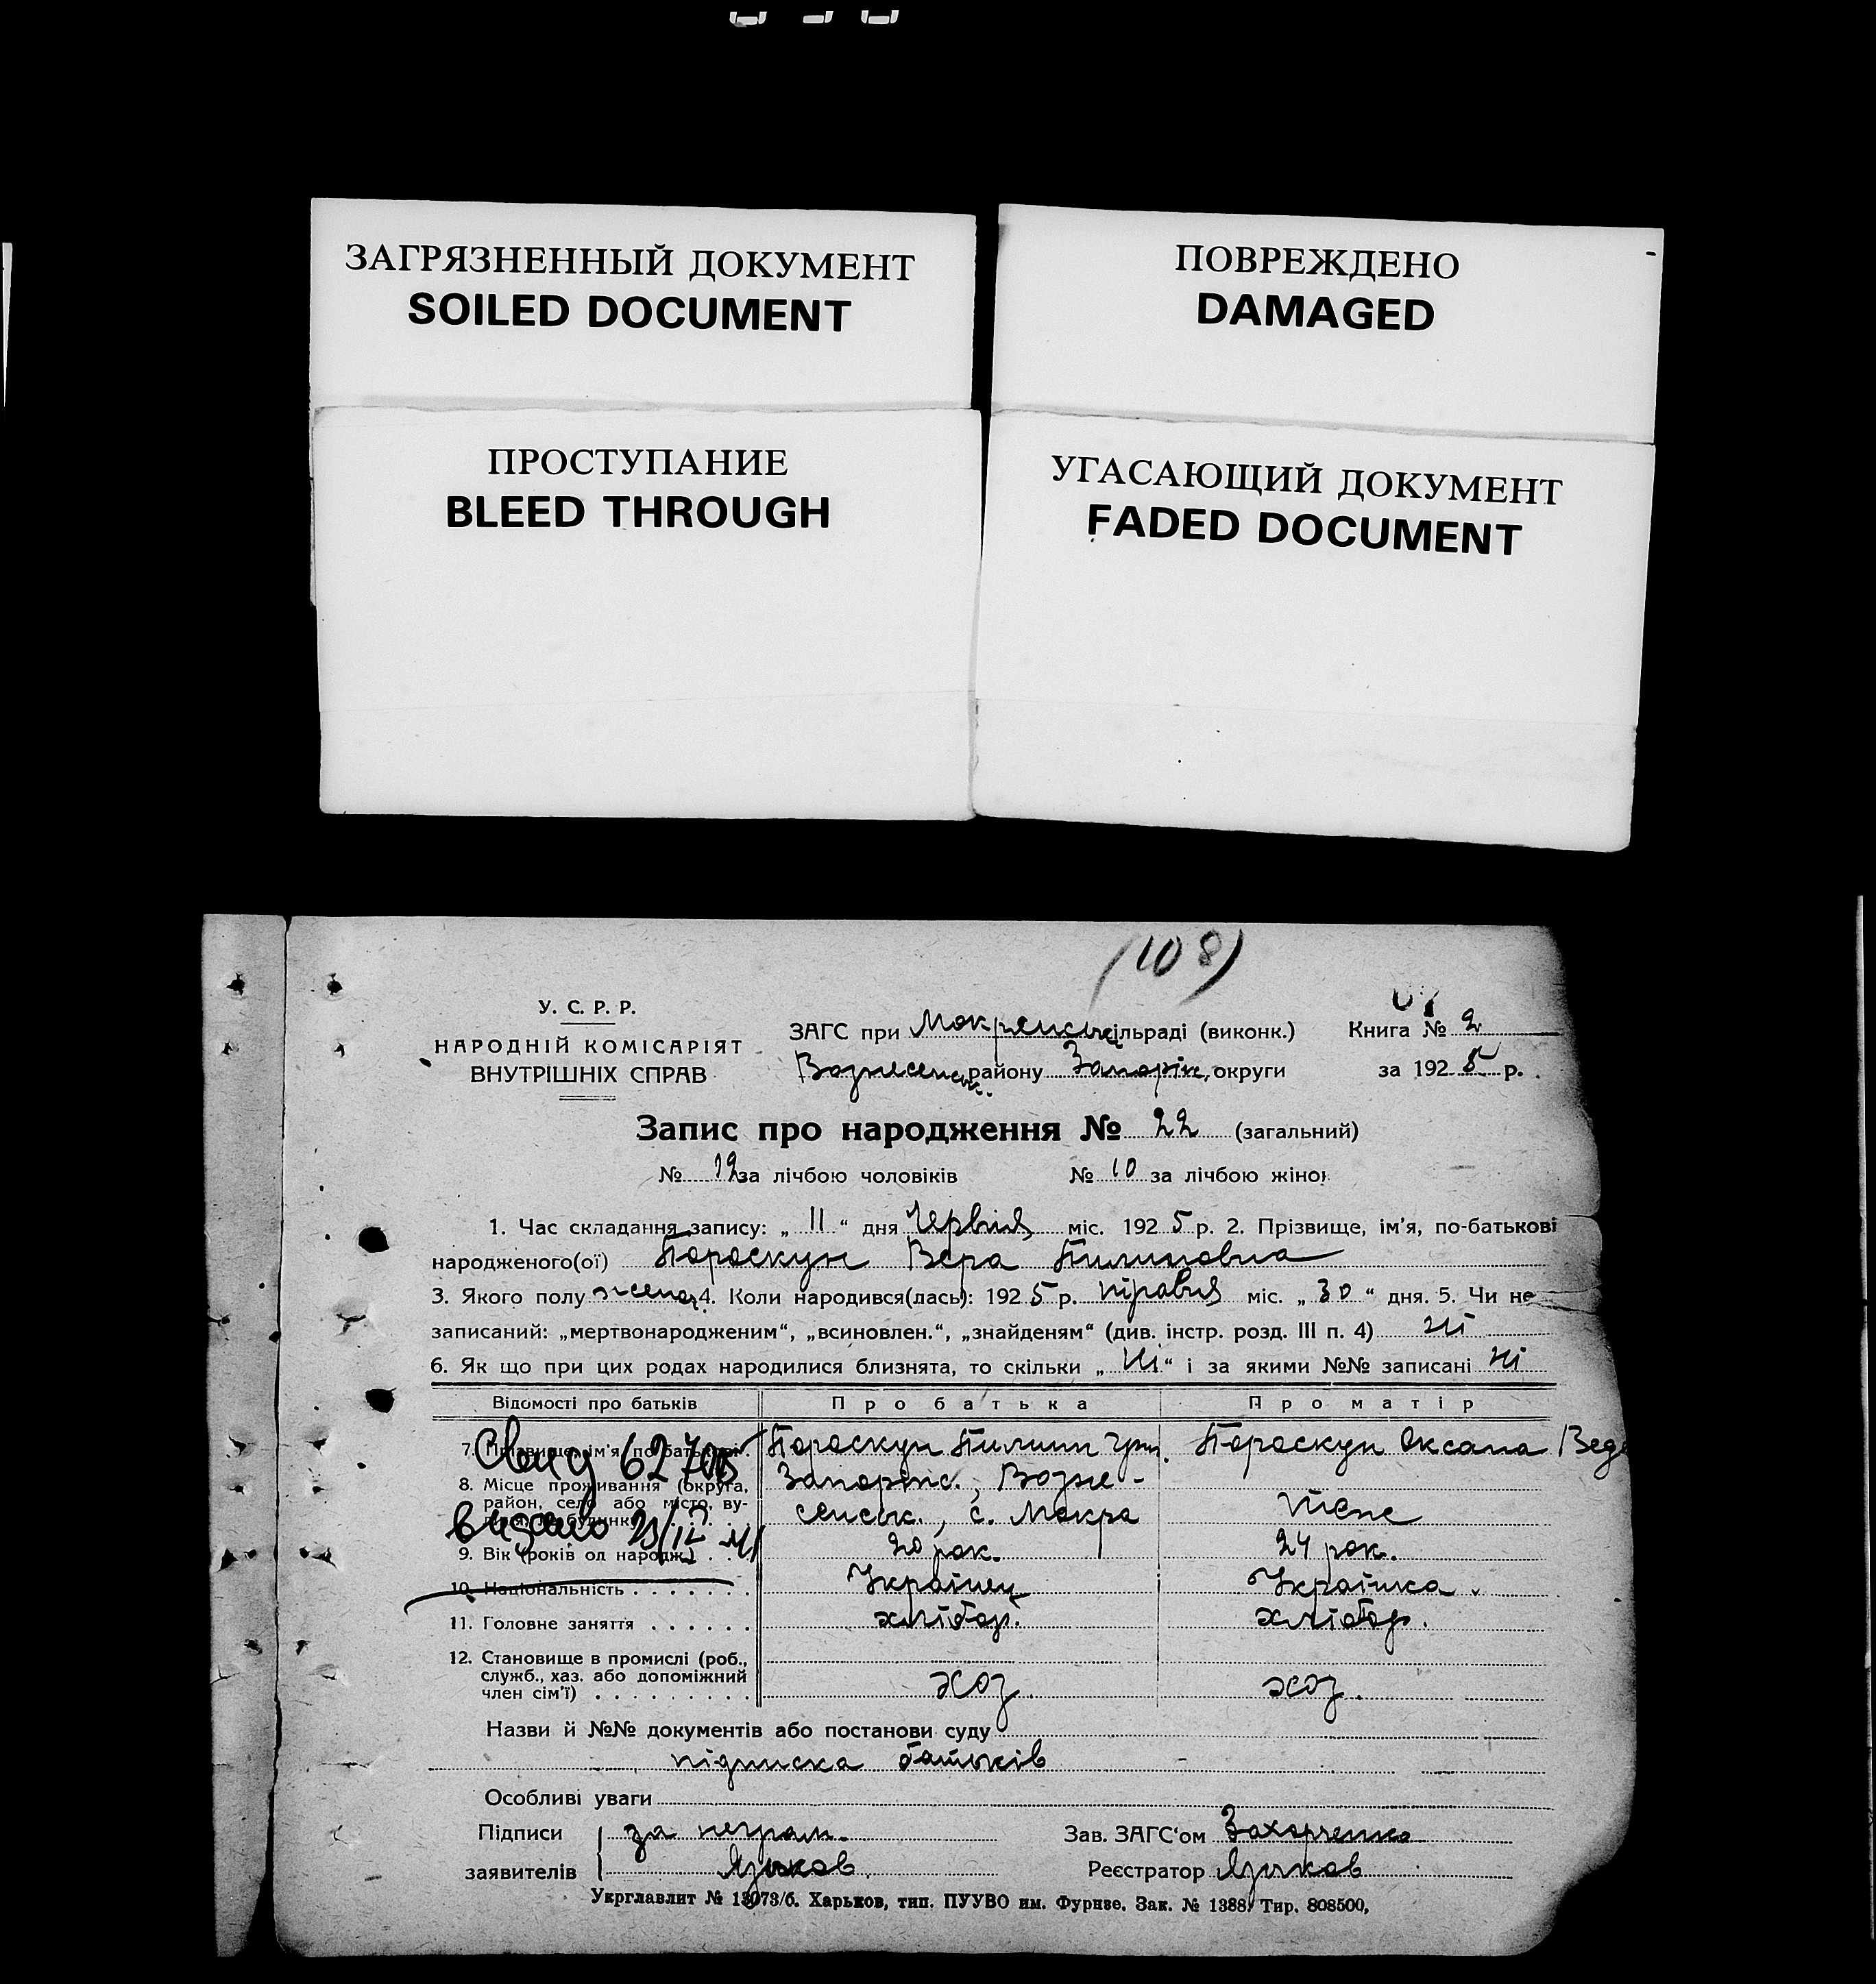 ЗАГРЯЗНЕННЫЙ ДОКУМЕНТ
SOILED DOCUMENT
ПОВРЕЖДЕНО
DAMAGED
ПРОСТУПАНИЕ
BLEED THROUGH
УГАСАЮЩИЙ ДОКУМЕНТ
FADED DOCUMENT
(108)
У. С. Р. Р.
НАРОДНІЙ КОМІСАРІЯТ
ВНУТРІШНІХ СПРАВ
ЗАГС при Мокрянськ ільраді (виконк.)
Вознесенськ. району Запоріж. округи
Книга № 2
за 192 5 р.
Запис про народження № 22 (загальний)
№ 12 за лічбою чоловіків № 10 за лічбою жінок
1. Час складання запису: „ 11 “ дня Червня міс. 192 5 р. 2. Прізвище, ім'я, по-батькові
народженого(ої) Пораскун Вера Пилиповна
3. Якого полу жено 4. Коли народився(лась): 192 5 р. травня міс. „ 30 “ дня. 5. Чи не
записаний: „мертвонародженим“, „всиновлен.“, „знайденям“ (див. інстр. розд. III п. 4) ні
6. Як що при цих родах народилися близнята, то скільки „ Ні “ і за якими №№ записані ні
Відомості про батьків Про батька Про матір
7. Прізвище, ім'я, по-батькові Пораскун Пилип Гри. Пораскун Оксана Вед
Свид 62700
8. Місце проживання (округа, Запоріж., Возне-
район, село або місто, ву- сенськ., с. Мокра тіепе
видано 23/IV 41
9. Вік (років од народж.) . . 20 рок. 24 рок.
10. Національність . . . . . . . Українец Українка.
11. Головне заняття . . . . . . хлібор. хлібор.
12. Становище в промислі (роб.,
служб., хаз. або допоміжний
член сім'ї) . . . . . . . . . хоз. хоз.
Назви й №№ документів або постанови суду
підписка батьків
Особливі уваги
Підписи за неграм. Зав. ЗАГС'ом Захарченко
заявителів Язиков Реєстратор Язиков
Укрглавлит № 13073/б. Харьков, тип. ПУУВО им. Фурнзе. Зак. № 1388. Тир. 808500,